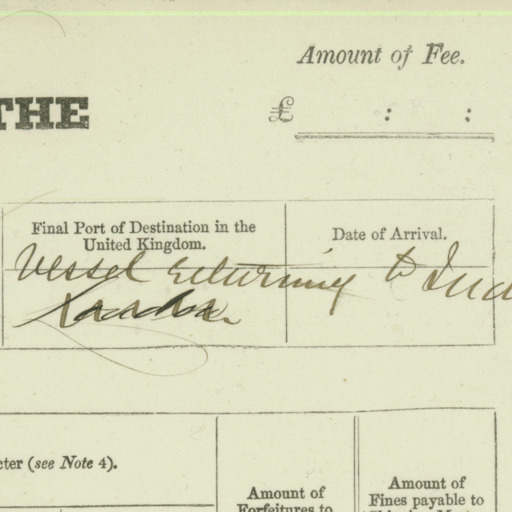 Amount of Fee.
THE
£ : :
Final Port of Destination in the
United Kingdom.
Date of Arrival.
Vessel returning to Ind
London
cter (see Note 4).
Amount of
Forfeitures to
Amount of
Fines payable to